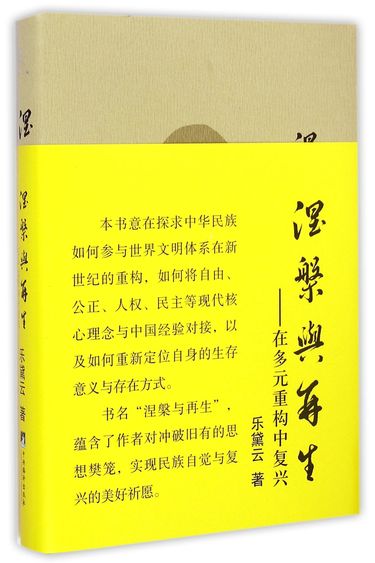 涅
涅槃與再生
乐黛云 著
中央编译出版社
涅槃與再生
——在多元重构中复兴
乐黛云 著
本书意在探求中华民族
如何参与世界文明体系在新
世纪的重构，如何将自由、
公正、人权、民主等现代核
心理念与中国经验对接，以
及如何重新定位自身的生存
意义与存在方式。
书名“涅槃与再生”，
蕴含了作者对冲破旧有的思
想樊笼，实现民族自觉与复
兴的美好祈愿。